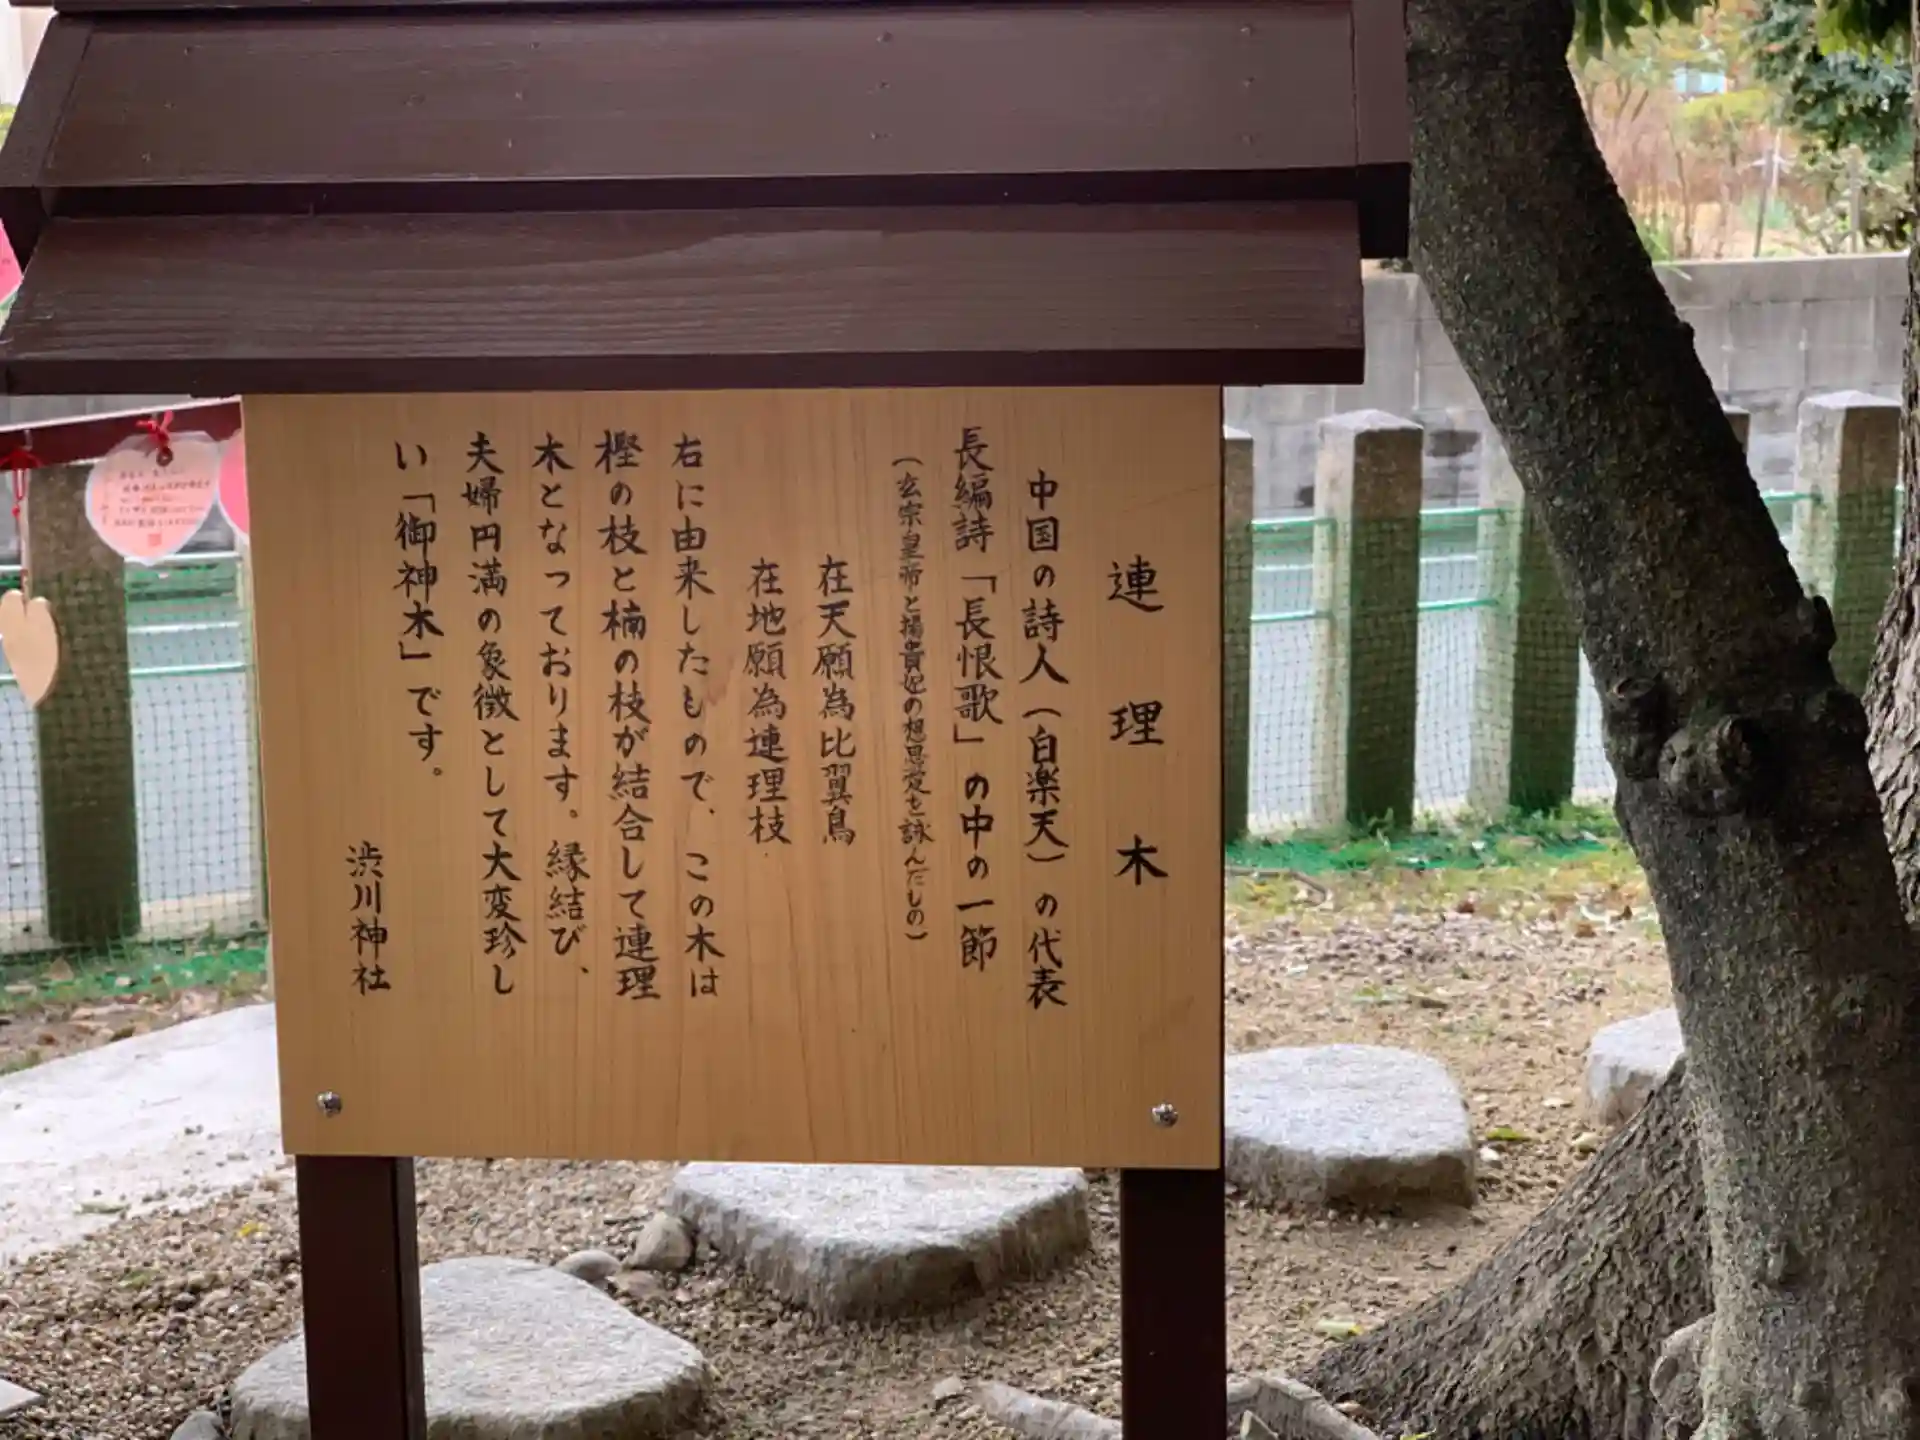 連理木
中国の詩人(白楽天)の代表
長編詩「長恨歌」の中の一節
(玄宗皇帝と揚貴妃の想思愛を詠んだもの)
在天願為比翼鳥
在地願為連理枝
右に由来したもので、この木は
樫の枝と楠の枝が結合して連理
木となっております。縁結び、
夫婦円満の象徴として大変珍し
い「御神木」です。
渋川神社